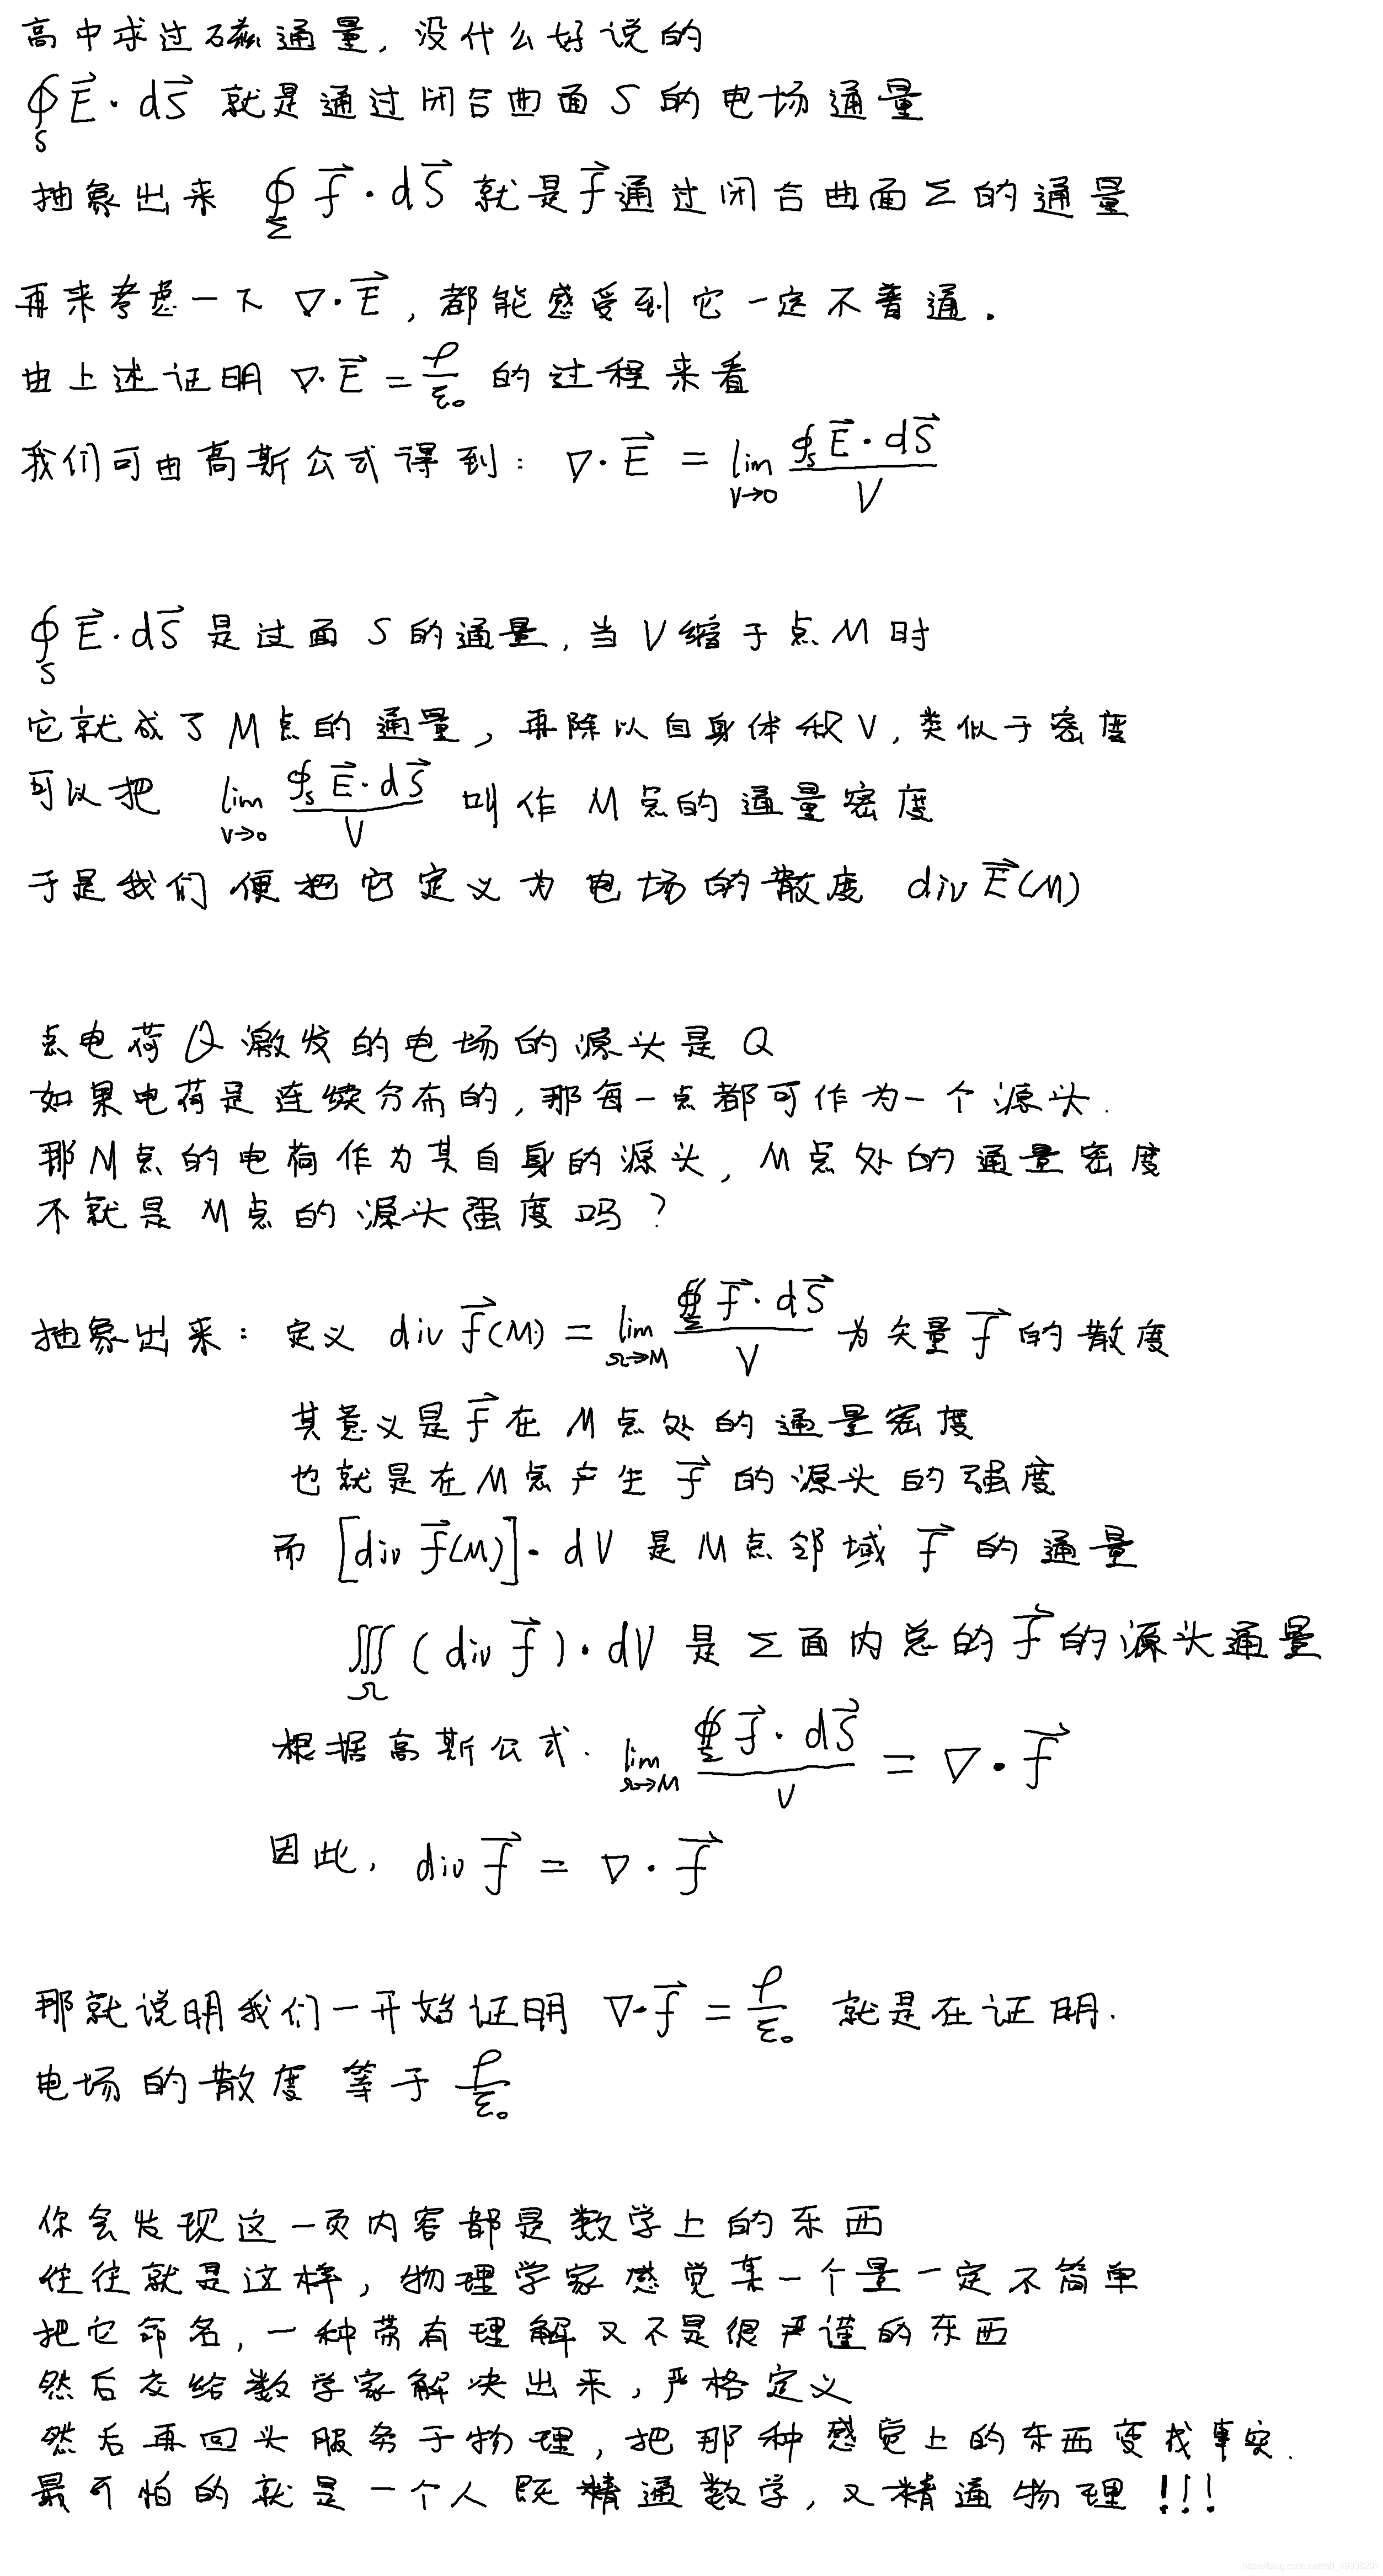 高中求过磁通量, 没什么好说的
∮_S E⃗·dS⃗ 就是通过闭合曲面 S 的电场通量
抽象出来 ∮_Σ f⃗·dS⃗ 就是 f⃗ 通过闭合曲面 Σ 的通量
再来考虑一下 ∇·E⃗, 都能感受到它一定不普通.
由上述证明 ∇·E⃗ = ρ/ε₀ 的过程来看
我们可由高斯公式得到: ∇·E⃗ = lim_{V→0} ∮_S E⃗·dS⃗ / V
∮_S E⃗·dS⃗ 是过面 S 的通量, 当 V 缩于点 M 时
它就成了 M 点的通量, 再除以自身体积 V, 类似于密度
可以把 lim_{V→0} ∮_S E⃗·dS⃗ / V 叫作 M 点的通量密度
于是我们便把它定义为电场的散度 div E⃗(M)
点电荷 Q 激发的电场的源头是 Q
如果电荷是连续分布的, 那每一点都可作为一个源头.
那 M 点的电荷作为其自身的源头, M 点处的通量密度
不就是 M 点的源头强度吗?
抽象出来: 定义 div f⃗(M) = lim_{Ω→M} ∯_Σ f⃗·dS⃗ / V 为矢量 f⃗ 的散度
其意义是 f⃗ 在 M 点处的通量密度
也就是在 M 点产生 f⃗ 的源头的强度
而 [div f⃗(M)]·dV 是 M 点邻域 f⃗ 的通量
∭_Ω (div f⃗)·dV 是 Σ 面内总的 f⃗ 的源头通量
根据高斯公式. lim_{Ω→M} ∯_Σ f⃗·dS⃗ / V = ∇·f⃗
因此, div f⃗ = ∇·f⃗
那就说明我们一开始证明 ∇·f⃗ = ρ/ε₀ 就是在证明.
电场的散度 等于 ρ/ε₀
你会发现这一页内容都是数学上的东西
往往就是这样, 物理学家感觉某一个量一定不简单
把它命名, 一种带有理解又不是很严谨的东西
然后交给数学家解决出来, 严格定义
然后再回头服务于物理, 把那种感觉上的东西变成事实.
最可怕的就是一个人既精通数学, 又精通物理!!!
https://blog.csdn.net/m0_49308201